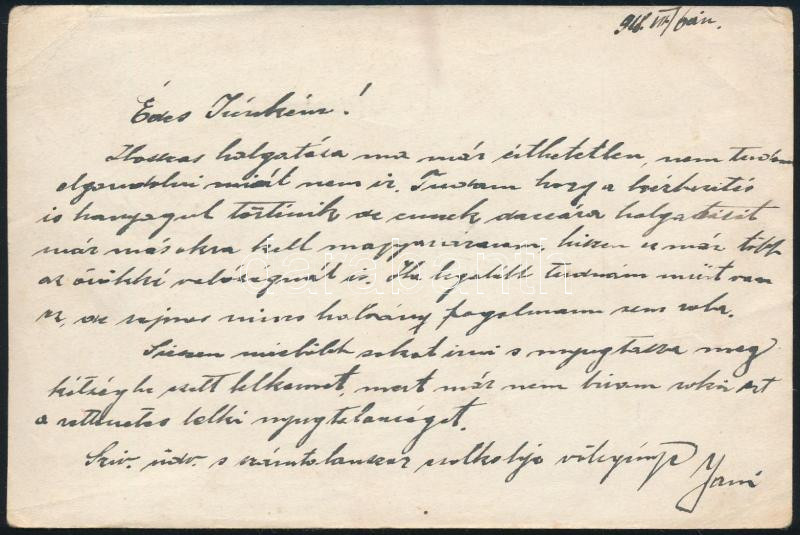 918. VII/6án.
Édes Icukám!
Hosszas halgatása ma már érthetetlen, nem tudom
elgondolni miért nem ir. Tudom hogy a kézbesités
is hanyagul történik de ennek daczára halgatását
már másokra kell magyaráznom, hiszen ez már több
az örökké valóságnál is. Ha legalább tudnám miért van
ez, de sajnos nincs halvány fogalmam sem róla.
Siessen mielőbb sokat irni s nyugtassa meg
kétségbe esett lelkemet, mert már nem birom soká ezt
a rettenetes lelki nyugtalanságot.
Sziv. üdv. s számtalanszor csolkolja
Jani